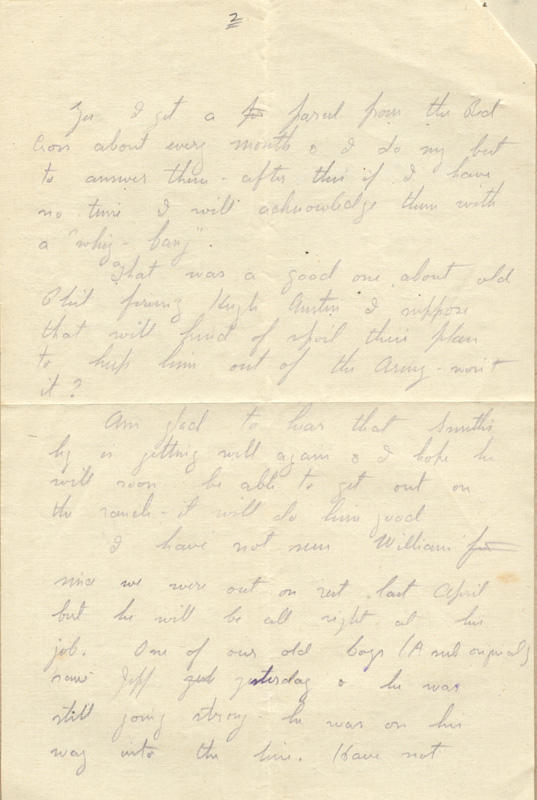 2
Yes I get a parcel from the Red
Cross about every month & I do my best
to answer them - after this if I have
no time I will acknowledge them with
a "whiz-bang".
That was a good one about old
Phil firing Hugh Austin I suppose
that will kind of spoil their plan
to keep him out of the Army - won't
it?
Am glad to hear that Smith's
leg is getting well again & I hope he
will soon be able to get out on
the ranch - it will do him good
I have not seen William
since we were out on rest last April
but he will be all right at his
job. One of our old boys (A original)
saw Jeff yesterday & he was
still going strong - he was on his
way into the line. Have not